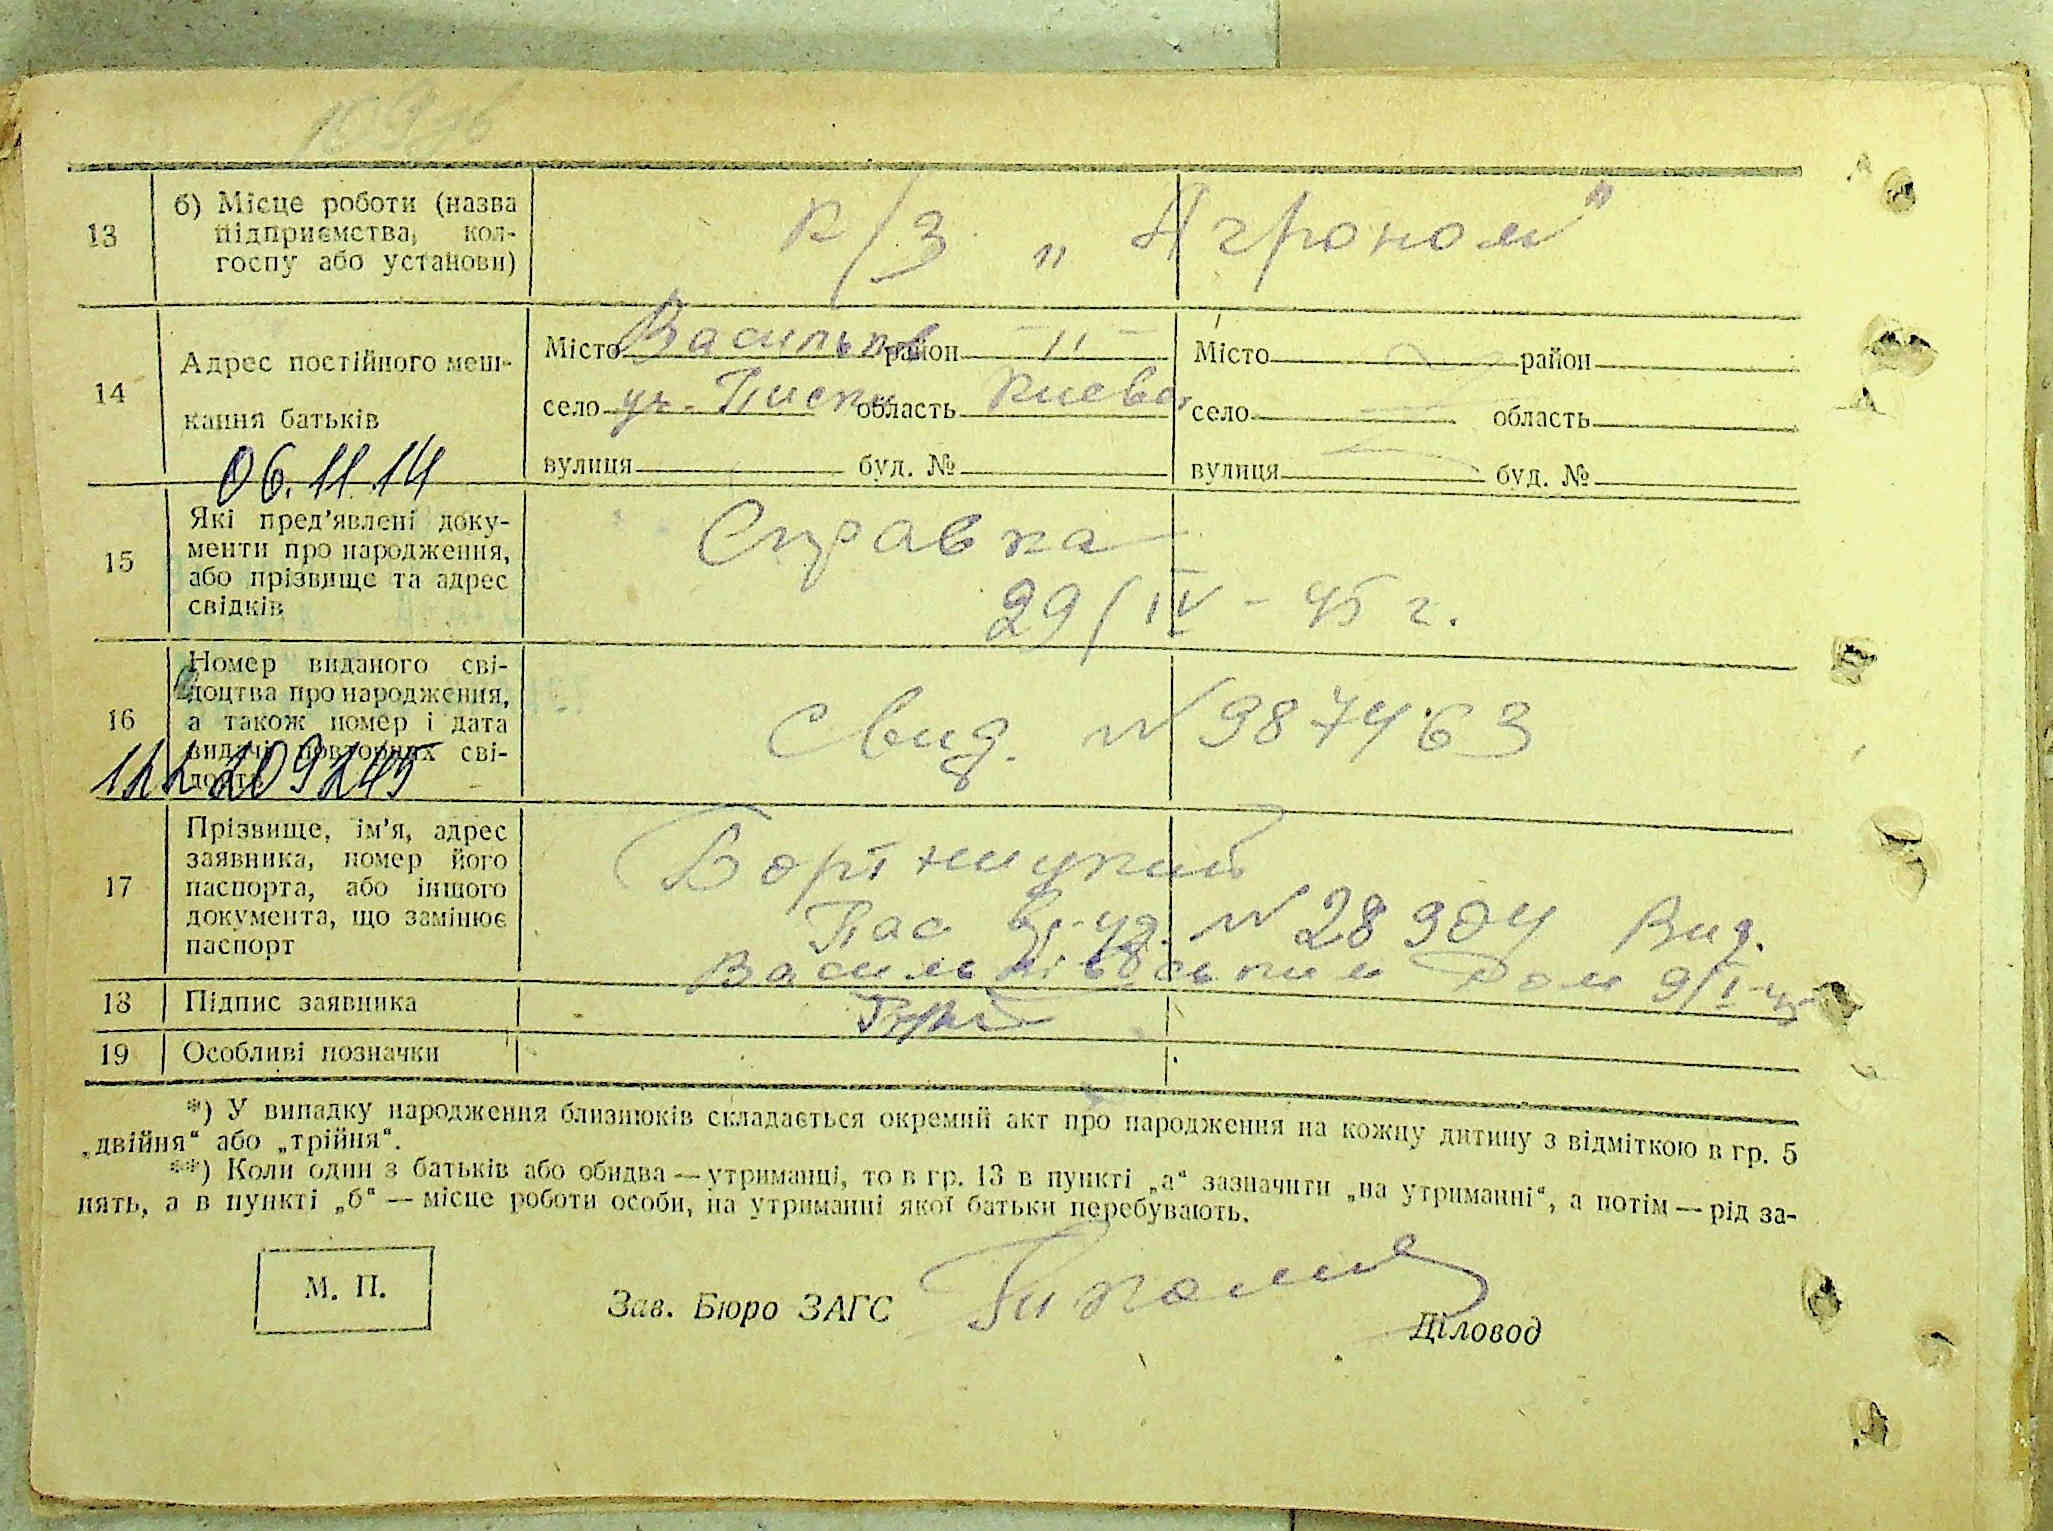 13 б) Місце роботи (назва підприємства, кол-
госпу або установи) к/з „Агроном"
14 Адрес постійного меш-
кання батьків
Місто Васильков район —"— Місто район
село область Киевс. село область
вулиця буд. № вулиця буд. №
06.11.14
15 Які пред'явлені доку-
менти про народження,
або прізвище та адрес
свідків
Справка
29/IV - 45 г.
16 Номер виданого сві-
доцтва про народження,
а також номер і дата
видачі повторних сві-
доцтв
Свид. № 987463
209245
17 Прізвище, ім'я, адрес
заявника, номер його
паспорта, або іншого
документа, що замінює
паспорт
Бортницкий
Пас № 28904 Вид.
18 Підпис заявника
19 Особливі позначки
*) У випадку народження близнюків складається окремий акт про народження на кожну дитину з відміткою в гр. 5
„двійня" або „трійня".
**) Коли один з батьків або обидва — утриманці, то в гр. 13 в пункті „а" зазначити „на утриманні", а потім — рід за-
нять, а в пункті „б" — місце роботи особи, на утриманні якої батьки перебувають.
М. П.
Зав. Бюро ЗАГС
Діловод